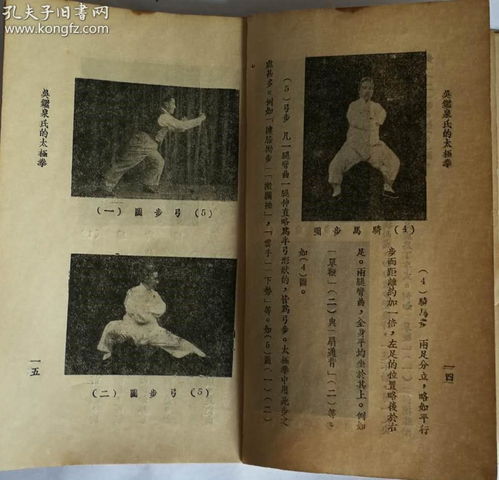 孔夫子旧书网
www.kongfz.com
吳鑑泉氏的太極拳
圖步馬騎 (4)
(4)騎馬步 兩足分立,略如平行
步而距離約加一倍,左足的位置略後於右
足。兩腿彎曲,全身平均坐於其上。例如
「單鞭」(二)與「扇通背」(二)等。
如(4)圖。
(5)弓步 凡一腿彎曲一腿伸直略為半弓形狀的,皆為弓步。太極拳中用此步之
處甚多。例如「摟膝拗步」「攬雀尾」,「雲手」「下勢」等。如(5)圖(一)(二)
一四
吳鑑泉氏的太極拳
(一) 圖步弓 (5)
(二) 圖步弓 (5)
一五